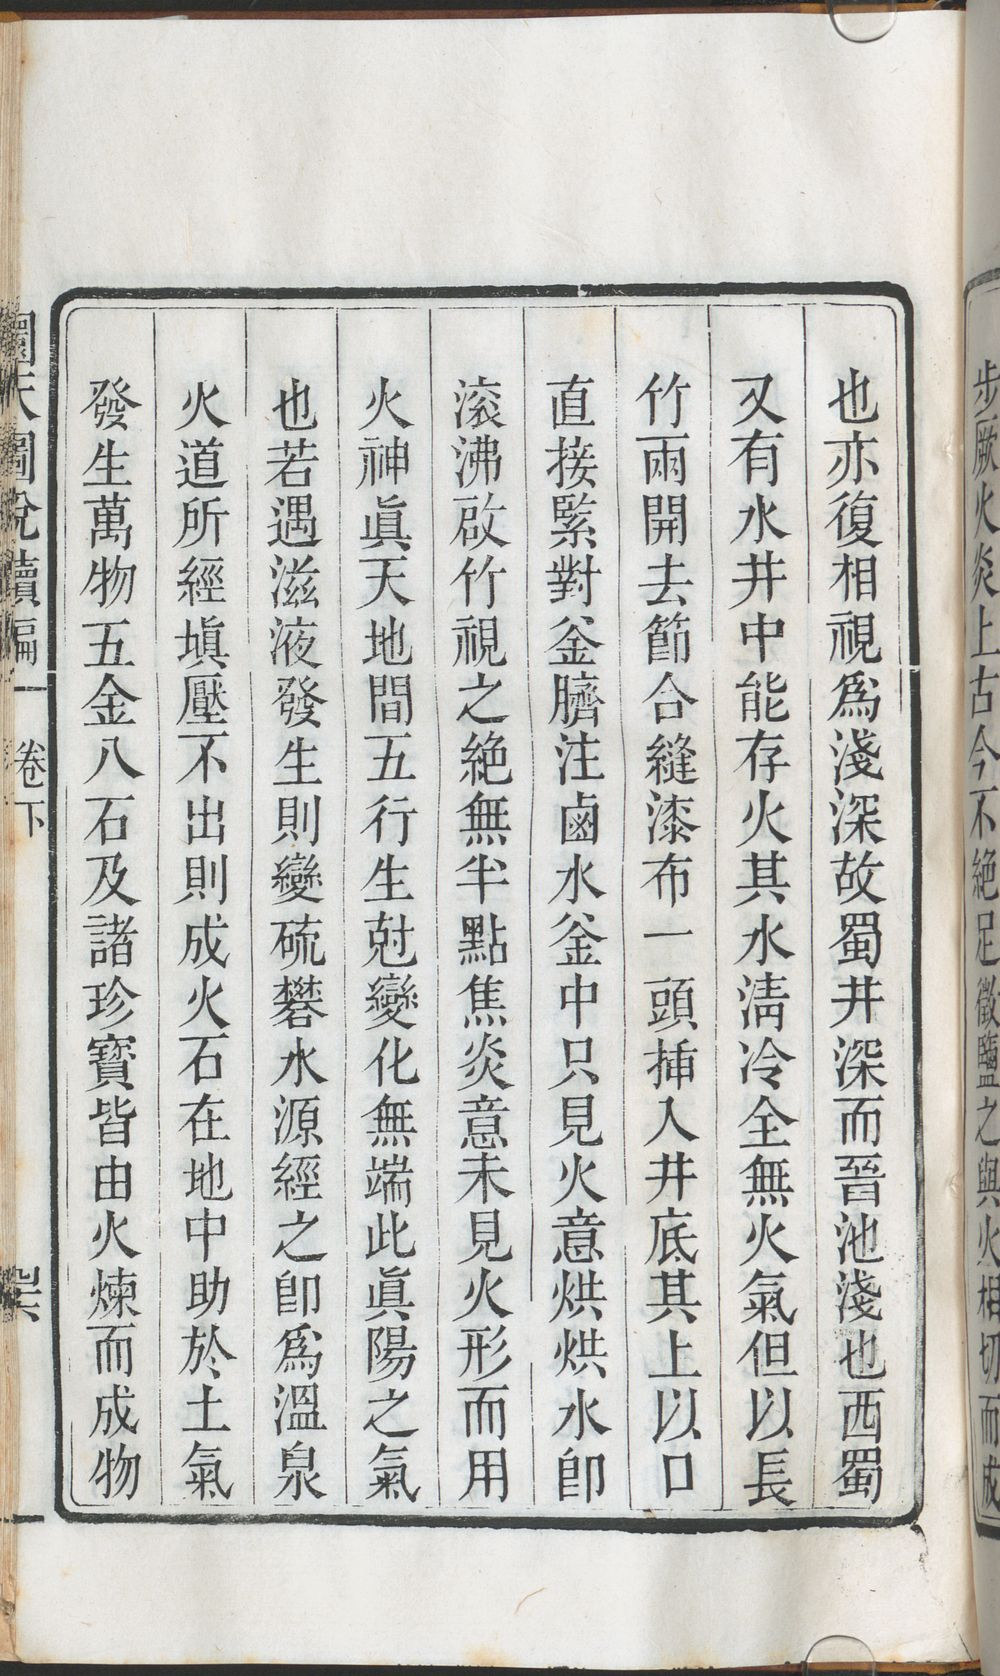 步厥火炎上古今不絶足徵鹽之與火相切而成
也亦復相視爲淺深故蜀井深而晉池淺也西蜀
又有水井中能存火其水淸冷全無火氣但以長
竹兩開去節合縫漆布一頭揷入井底其上以口
直接緊對釜臍注鹵水釜中只見火意烘烘水卽
滾沸啟竹視之絶無半點焦炎意未見火形而用
火神眞天地間五行生尅變化無端此眞陽之氣
也若遇滋液發生則變硫礬水源經之卽爲溫泉
火道所經塡壓不出則成火石在地中助於土氣
發生萬物五金八石及諸珍寶皆由火煉而成物
圜天圖說續編 卷下